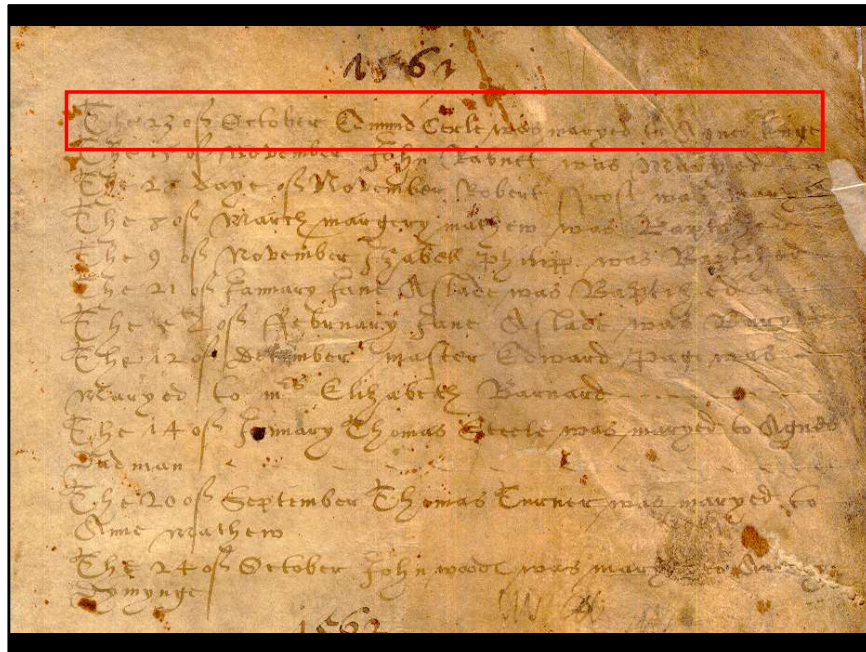 1561
The 23 of October Edmund Cerle was maryed to Agnes Kinge
The 15 of November John Ravnet was Maryed
The 28 daye of November Robert Frost was marye
The 8 of March margery mathew was Baptized
The 9 of November Izabell Philipp was Baptized
The 21 of January Jane Aslade was Baptized
The 5 of February Jane Aslade was Buryed
The 12 of december master Edward page was
Maryed to mrs Elizabeth Barnard
The 14 of January Thomas Steele was maryed to Agnes
Dedman
The 20 of September Thomas Turner was maryed to
Anne Mathew
The 24 of October John wood was maryed to
1562